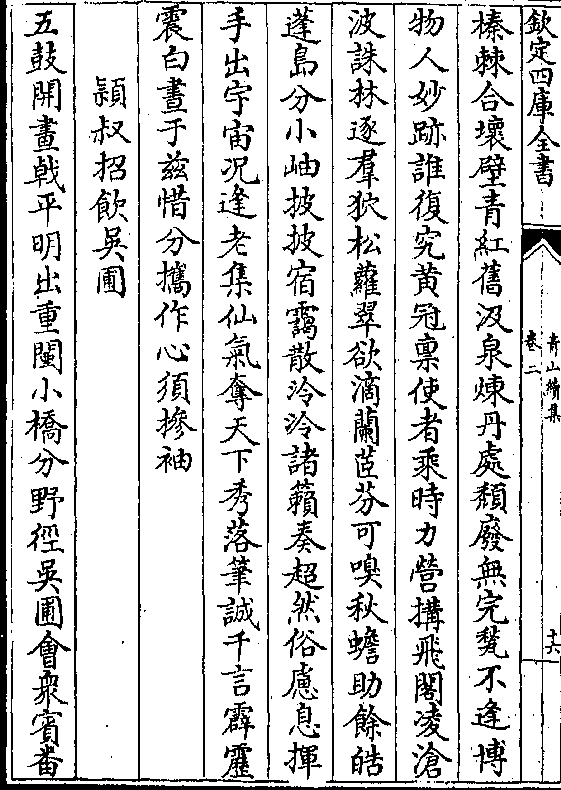 欽定四庫全書
青山續集
卷二
十六
榛棘合壞壁青紅舊汲泉煉丹處頽廢無完甃不逢博
物人妙跡誰復究黄冠禀使者乘時力營搆飛閣凌滄
波誅林逐羣狖松蘿翠欲滴蘭茝芬可嗅秋蟾助餘皓
蓬島分小岫披披宿靄散泠泠諸籟奏超然俗慮息揮
手出宇宙况逢老集仙氣奪天下秀落筆誠千言霹靂
震白晝于兹惜分攜作心須摻袖
頴叔招飲吳圃
五鼓開畫戟平明出重闉小橋分野徑吳圃會衆賓畨